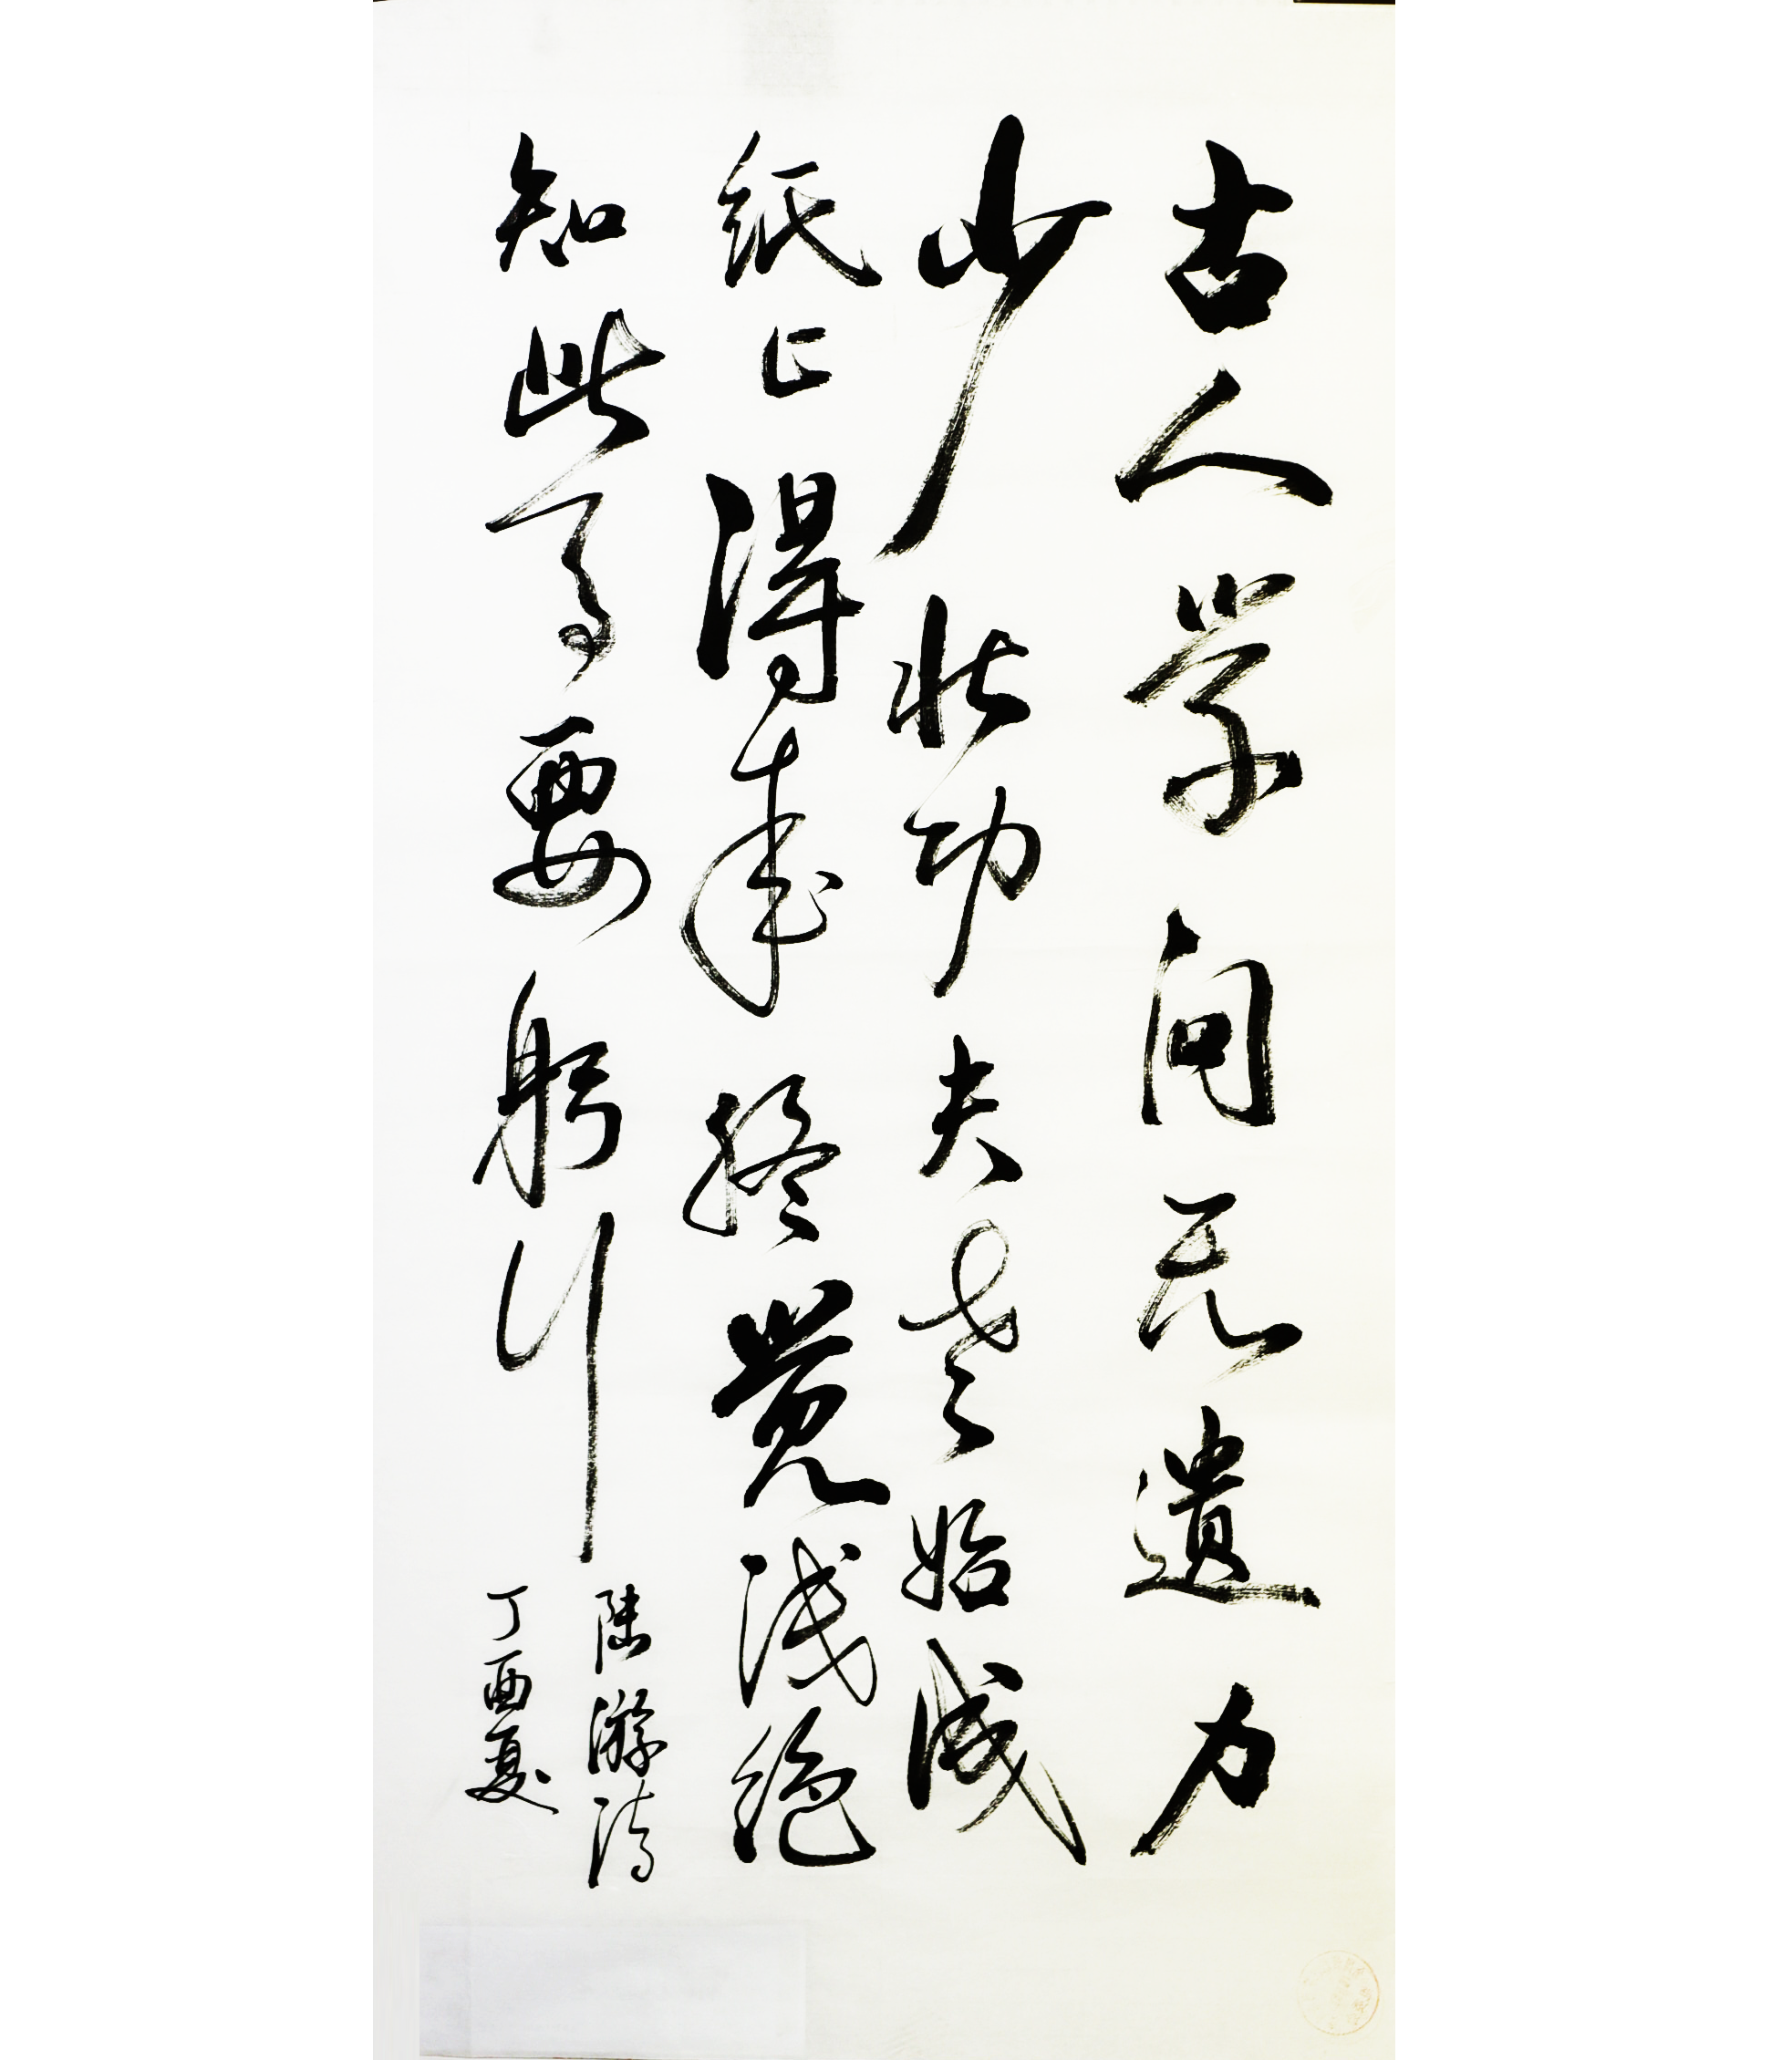 古人学问无遗力
少壮功夫老始成
纸上得来终觉浅绝
知此事要躬行
陆游诗
丁酉夏